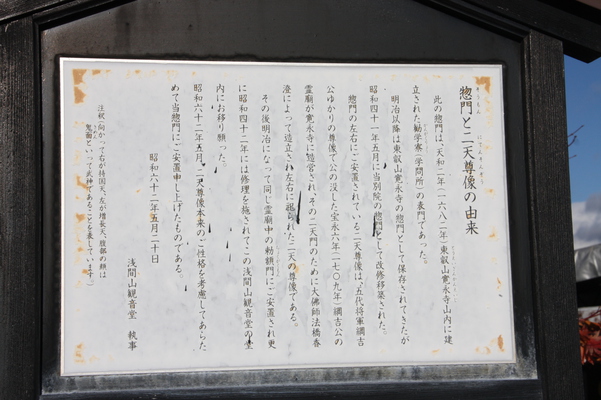 惣門と二天尊像の由来
此の惣門は、天和二年(一六八二年)東叡山寛永寺山内に建
立された勧学寮(学問所)の表門であった。
明治以降は東叡山寛永寺の惣門として保存されてきたが
昭和四十一年五月に当別院の惣門として改修移築された。
惣門の左右にご安置されている二天尊像は、五代将軍綱吉
公ゆかりの尊像で公の没した宝永六年(一七〇九年)綱吉公の
霊廟が寛永寺に造営され、その二天門のために大佛師法橋春
澄によって造立され左右に祀られた二天の尊像である。
その後明治になって同じ霊廟中の勅額門にご安置され更
に昭和四十二年には修理を施されてこの浅間山観音堂の堂
内にお移り願った。
昭和六十二年五月、二天尊像本来のご性格を考慮してあらた
めて当惣門にご安置申し上げたものである。
昭和六十二年五月二十日
浅間山観音堂 執事
注釈(向かって右が持国天、左が増長天、腹部の顔は
鬼面といって武神であることを表しています。)